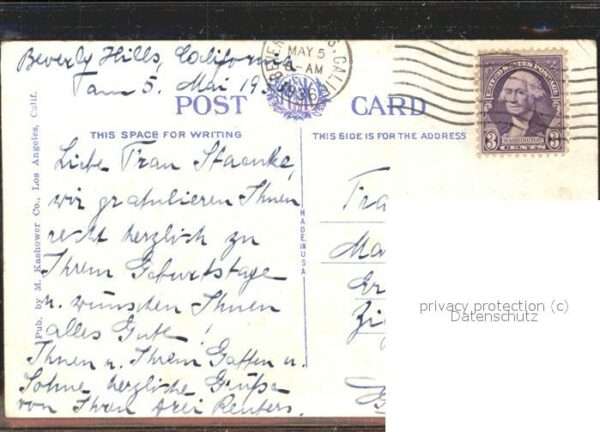 Beverly Hills, California
am 5. Mai 1936
BEVERLY HILLS, CALIF.
MAY 5
8-AM
1936
UNITED STATES POSTAGE
3 WASHINGTON 3
POST CARD
THIS SPACE FOR WRITING
THIS SIDE IS FOR THE ADDRESS
Pub. by M. Kashower Co., Los Angeles, Calif.
MADE IN USA
Liebe Frau
wir gratulieren Ihnen
recht herzlich zu
Ihrem Geburtstage
u. wünschen Ihnen
alles Gute!
Ihnen u. Ihrem Gatten u.
Sohne herzliche Grüße
von Ihren drei Reuters.
Fra
Ma
privacy protection (c)
Datenschutz